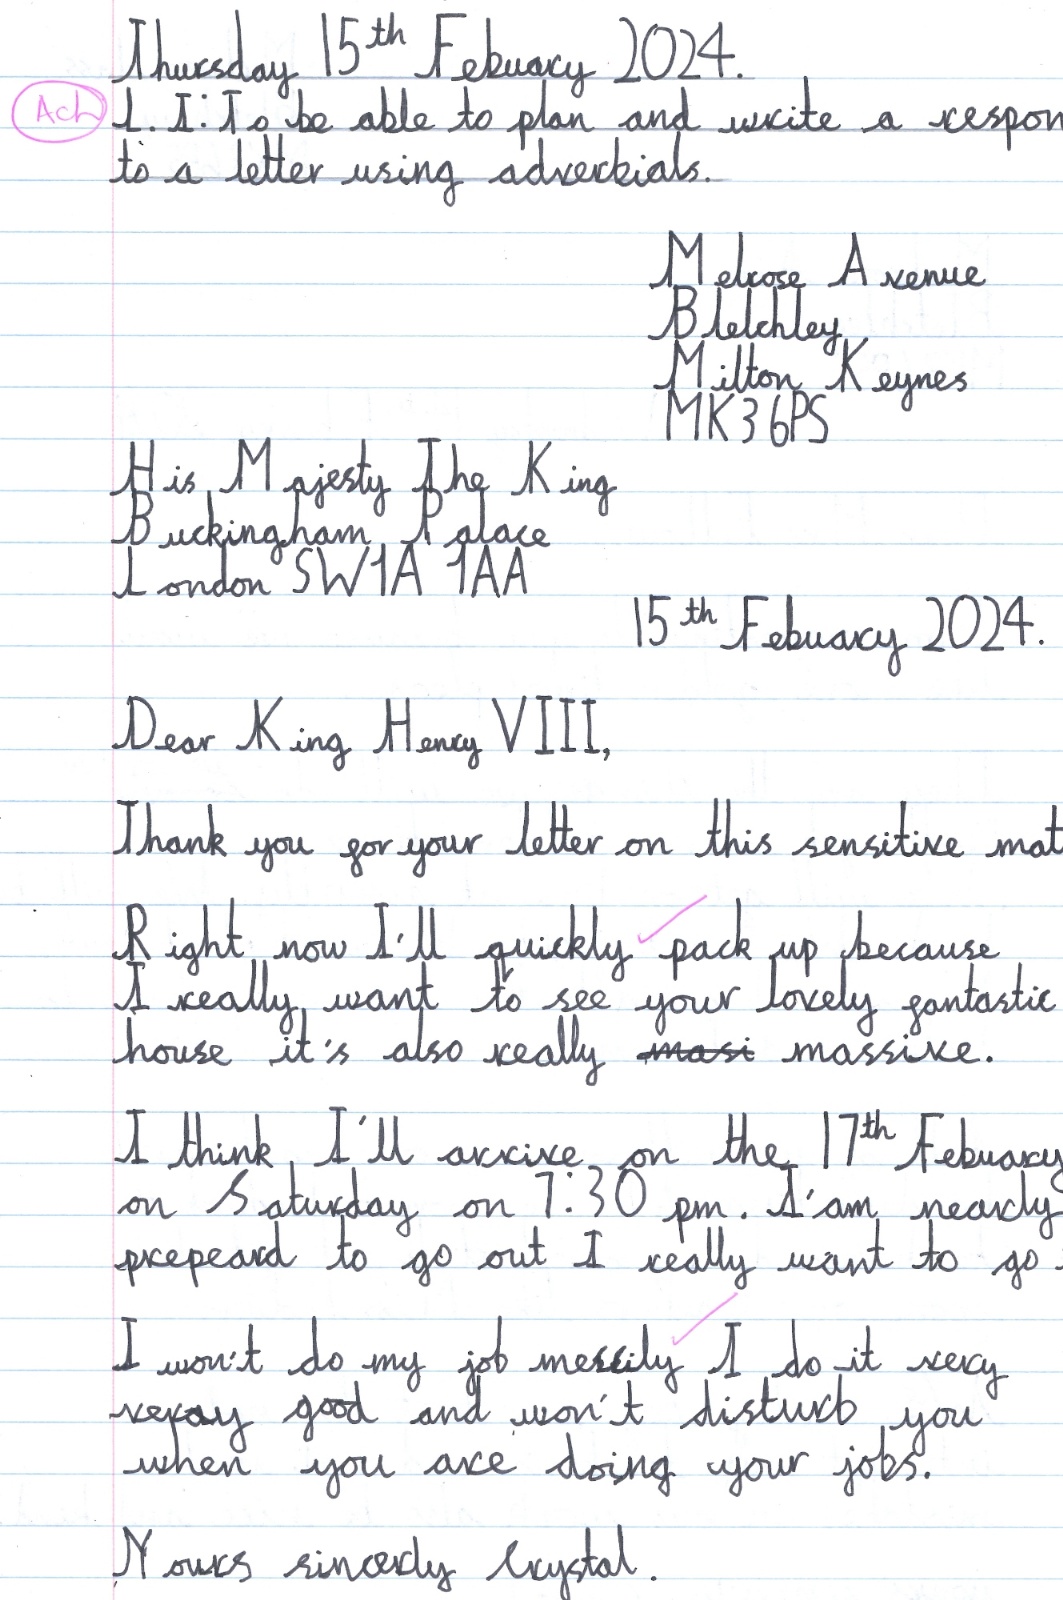 Thursday 15th Febuary 2024.
Ach L.I: To be able to plan and write a respon
to a letter using adverbials.
Melrose Avenue
Bletchley
Milton Keynes
MK3 6PS
His Majesty The King
Buckingham Palace
London SW1A 1AA
15th Febuary 2024.
Dear King Henry VIII,
Thank you for your letter on this sensitive mat
Right now I'll quickly pack up because
I really want to see your lovely fantastic
house it's also really masi massive.
I think I'll arrive on the 17th Febuary
on Saturday on 7:30 pm. I'am nearly
prepeard to go out I really want to go.
I won't do my job merrily I do it very
good and won't disturb you
when you are doing your jobs.
Yours sincerly Crystal.